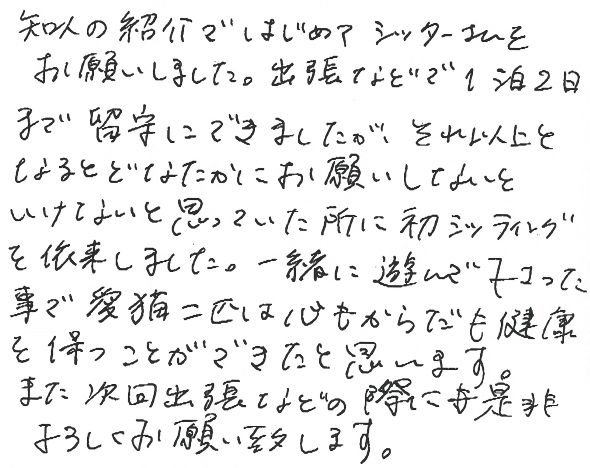 知人の紹介ではじめて シッターさんを
お願いしました。出張などで1泊2日
まで留守にできましたが、それ以上と
なるとどなたかにお願いしてないと
いけないと思っていた所に初シッティング
を依来しました。一緒に遊んでもらった
事で愛猫二匹は心もからだも健康
を保つことができたと思います。
また次回出張などの際にも是非
よろしくお願い致します。